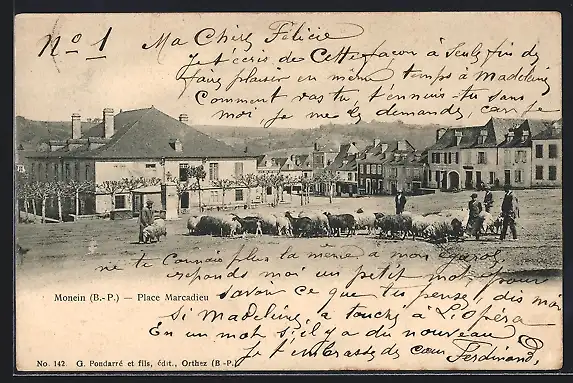 No 1
Ma Chère Félicie
Je t'écris de Cette façon à Seule fin de
faire plaisir en même temps à Madeline
Comment vas tu t'ennuis-tu sans
moi, je me le demande, car je
ne te Connais plus la même à mon égard
reponds moi un petit mot, pour
Savoir ce que tu pense, dis moi
Si Madeline, a touché à L'Opéra
En un mot s'il y a du nouveau
Je t'embrasse de cœur Ferdinand,
Monein (B.-P.) — Place Marcadieu
No. 142 G. Pondarré et fils, édit., Orthez (B-P.)